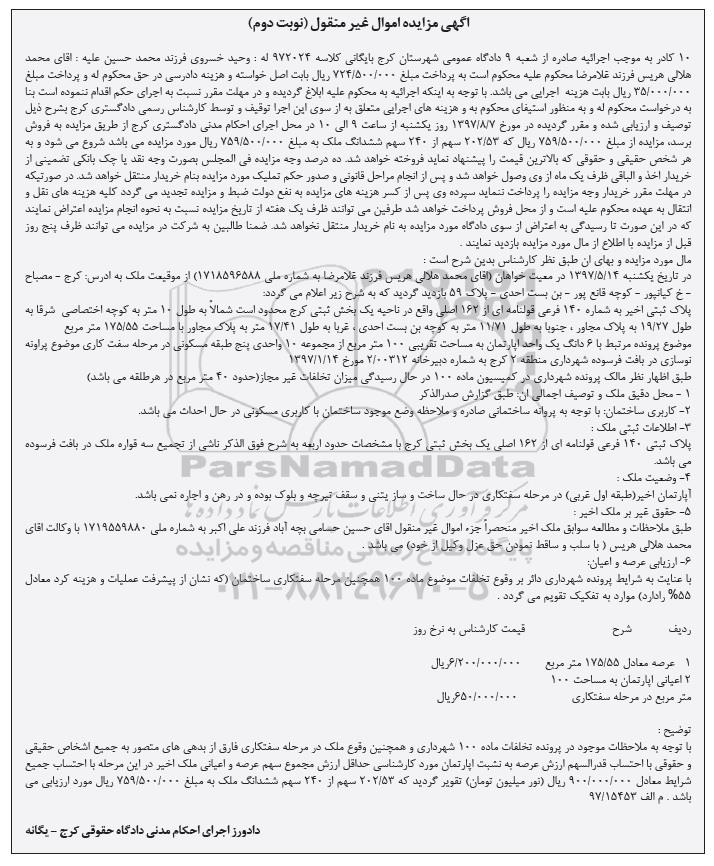 اگهی مزایده اموال غیر منقول (نوبت دوم)
۱۰ کادر به موجب اجرائیه صادره از شعبه ۹ دادگاه عمومی شهرستان کرج بایگانی کلاسه ۹۷۲۰۲۴ له : وحید خسروی فرزند محمد حسین علیه : اقای محمد
هلالی هریس فرزند غلامرضا محکوم علیه محکوم است به پرداخت مبلغ ۷۲۴/۵۰۰/۰۰۰ ریال بابت اصل خواسته و هزینه دادرسی در حق محکوم له و پرداخت مبلغ
۳۵/۰۰۰/۰۰۰ ریال بابت هزینه اجرایی می باشد. با توجه به اینکه اجرائیه به محکوم علیه ابلاغ گردیده و در مهلت مقرر نسبت به اجرای حکم اقدام ننموده است بنا
به درخواست محکوم له و به منظور استیفای محکوم به و هزینه های اجرایی متعلق به از سوی این اجرا توقیف و توسط کارشناس رسمی دادگستری کرج بشرح ذیل
توصیف و ارزیابی شده و مقرر گردیده در مورخ ۱۳۹۷/۸/۷ روز یکشنبه از ساعت ۹ الی ۱۰ در محل اجرای احکام مدنی دادگستری کرج از طریق مزایده به فروش
برسد، مزایده از مبلغ ۷۵۹/۵۰۰/۰۰۰ ریال که ۲۰۲/۵۳ سهم از ۲۴۰ سهم ششدانگ ملک به مبلغ ۷۵۹/۵۰۰/۰۰۰ ریال مورد مزایده می باشد شروع می شود و به
هر شخص حقیقی و حقوقی که بالاترین قیمت را پیشنهاد نماید فروخته خواهد شد. ده درصد وجه مزایده فی المجلس بصورت وجه نقد یا چک بانکی تضمینی از
خریدار اخذ و الباقی ظرف یک ماه از وی وصول خواهد شد و پس از انجام مراحل قانونی و صدور حکم تملیک مورد مزایده بنام خریدار منتقل خواهد شد. در صورتیکه
در مهلت مقرر خریدار وجه مزایده را پرداخت ننماید سپرده وی پس از کسر هزینه های مزایده به نفع دولت ضبط و مزایده تجدید می گردد کلیه هزینه های نقل و
انتقال به عهده محکوم علیه است و از محل فروش پرداخت خواهد شد طرفین می توانند ظرف یک هفته از تاریخ مزایده نسبت به نحوه انجام مزایده اعتراض نمایند
که در این صورت تا رسیدگی به اعتراض از سوی دادگاه مورد مزایده به نام خریدار منتقل نخواهد شد. ضمنا طالبین به شرکت در مزایده می توانند ظرف پنج روز
قبل از مزایده با اطلاع از مال مورد مزایده بازدید نمایند .
مال مورد مزایده و بهای ان طبق نظر کارشناس بدین شرح است :
در تاریخ یکشنبه ۱۳۹۷/۵/۱۴ در معیت خواهان (اقای محمد هلالی هریس فرزند غلامرضا به شماره ملی ۱۷۱۸۵۹۶۵۸۸) از موقیعت ملک به ادرس: کرج - مصباح
- خ کیانپور - کوچه قانع پور - بن بست احدی - پلاک ۵۹ بازدید گردید که به شرح زیر اعلام می گردد:
پلاک ثبتی اخیر به شماره ۱۴۰ فرعی قولنامه ای از ۱۶۲ اصلی واقع در ناحیه یک بخش ثبتی کرج محدود است شمالاً به طول ۱۰ متر به کوچه اختصاصی شرقا به
طول ۱۹/۲۷ به پلاک مجاور ، جنوبا به طول ۱۱/۷۱ متر به کوچه بن بست احدی ، غربا به طول ۱۷/۴۱ متر به پلاک مجاور با مساحت ۱۷۵/۵۵ متر مربع
موضوع پرونده مرتبط با ۶ دانگ یک واحد اپارتمان به مساحت تقریبی ۱۰۰ متر مربع از مجموعه ۱۰ واحدی پنج طبقه مسکونی در مرحله سفت کاری موضوع پراونه
نوسازی در بافت فرسوده شهرداری منطقه ۲ کرج به شماره دبیرخانه ۲/۰۰۳۱۲ مورخ ۱۳۹۷/۱/۱۴
طبق اظهار نظر مالک پرونده شهرداری در کمیسیون ماده ۱۰۰ در حال رسیدگی میزان تخلفات غیر مجاز(حدود ۴۰ متر مربع در هرطلقه می باشد)
۱ - محل دقیق ملک و توصیف اجمالی ان: طبق گزارش صدرالذکر
۲- کاربری ساختمان: با توجه به پروانه ساختمانی صادره و ملاحظه وضع موجود ساختمان با کاربری مسکونی در حال احداث می باشد.
۳- اطلاعات ثبتی ملک :
پلاک ثبتی ۱۴۰ فرعی قولنامه ای از ۱۶۲ اصلی یک بخش ثبتی کرج با مشخصات حدود اربعه به شرح فوق الذکر ناشی از تجمیع سه قواره ملک در بافت فرسوده
می باشد.
۴- وضعیت ملک :
آپارتمان اخیر(طبقه اول غربی) در مرحله سفتکاری در حال ساخت و ساز یتنی و سقف تیرچه و بلوک بوده و در رهن و اجاره نمی باشد.
۵- حقوق غیر بر ملک اخیر :
طبق ملاحظات و مطالعه سوابق ملک اخیر منحصراً جزء اموال غیر منقول اقای حسین حسامی بچه آباد فرزند علی اکبر به شماره ملی ۱۷۱۹۵۵۹۸۸۰ با وکالت اقای
محمد هلالی هریس ( با سلب و ساقط نمودن حق عزل وکیل از خود) می باشد .
۶- ارزیابی عرصه و اعیان:
با عنایت به شرایط پرونده شهرداری دائر بر وقوع تخلفات موضوع ماده ۱۰۰ همچنین مرحله سفتکاری ساختمان (که نشان از پیشرفت عملیات و هزینه کرد معادل
۵۵% رادارد) موارد به تفکیک تقویم می گردد .
ردیف شرح قیمت کارشناس به نرخ روز
۱ عرصه معادل ۱۷۵/۵۵ متر مربع ۶/۲۰۰/۰۰۰/۰۰۰ریال
۲ اعیانی اپارتمان به مساحت ۱۰۰
متر مربع در مرحله سفتکاری ۶۵۰/۰۰۰/۰۰۰ریال
توضیح :
با توجه به ملاحظات موجود در پرونده تخلفات ماده ۱۰۰ شهرداری و همچنین وقوع ملک در مرحله سفتکاری فارق از بدهی های متصور به جمیع اشخاص حقیقی
و حقوقی با احتساب قدرالسهم ارزش عرصه به نشبت اپارتمان مورد کارشناسی حداقل ارزش مجموع سهم عرصه و اعیانی ملک اخیر در این مرحله با احتساب جمیع
شرایط معادل ۹۰۰/۰۰۰/۰۰۰ ریال (نور میلیون تومان) تقویر گردید که ۲۰۲/۵۳ سهم از ۲۴۰ سهم ششدانگ ملک به مبلغ ۷۵۹/۵۰۰/۰۰۰ ریال مورد ارزیابی می
باشد . م الف ۹۷/۱۵۴۵۳
دادورز اجرای احکام مدنی دادگاه حقوقی کرج - یگانه
ParsNamadData
مرکز فرآوری اطلاعات پارس نماد داده ها
پایگاه اطلاع رسانی مناقصه و مزایده
۰۲۱-۸۸۳۴۹۶۷۰-۵